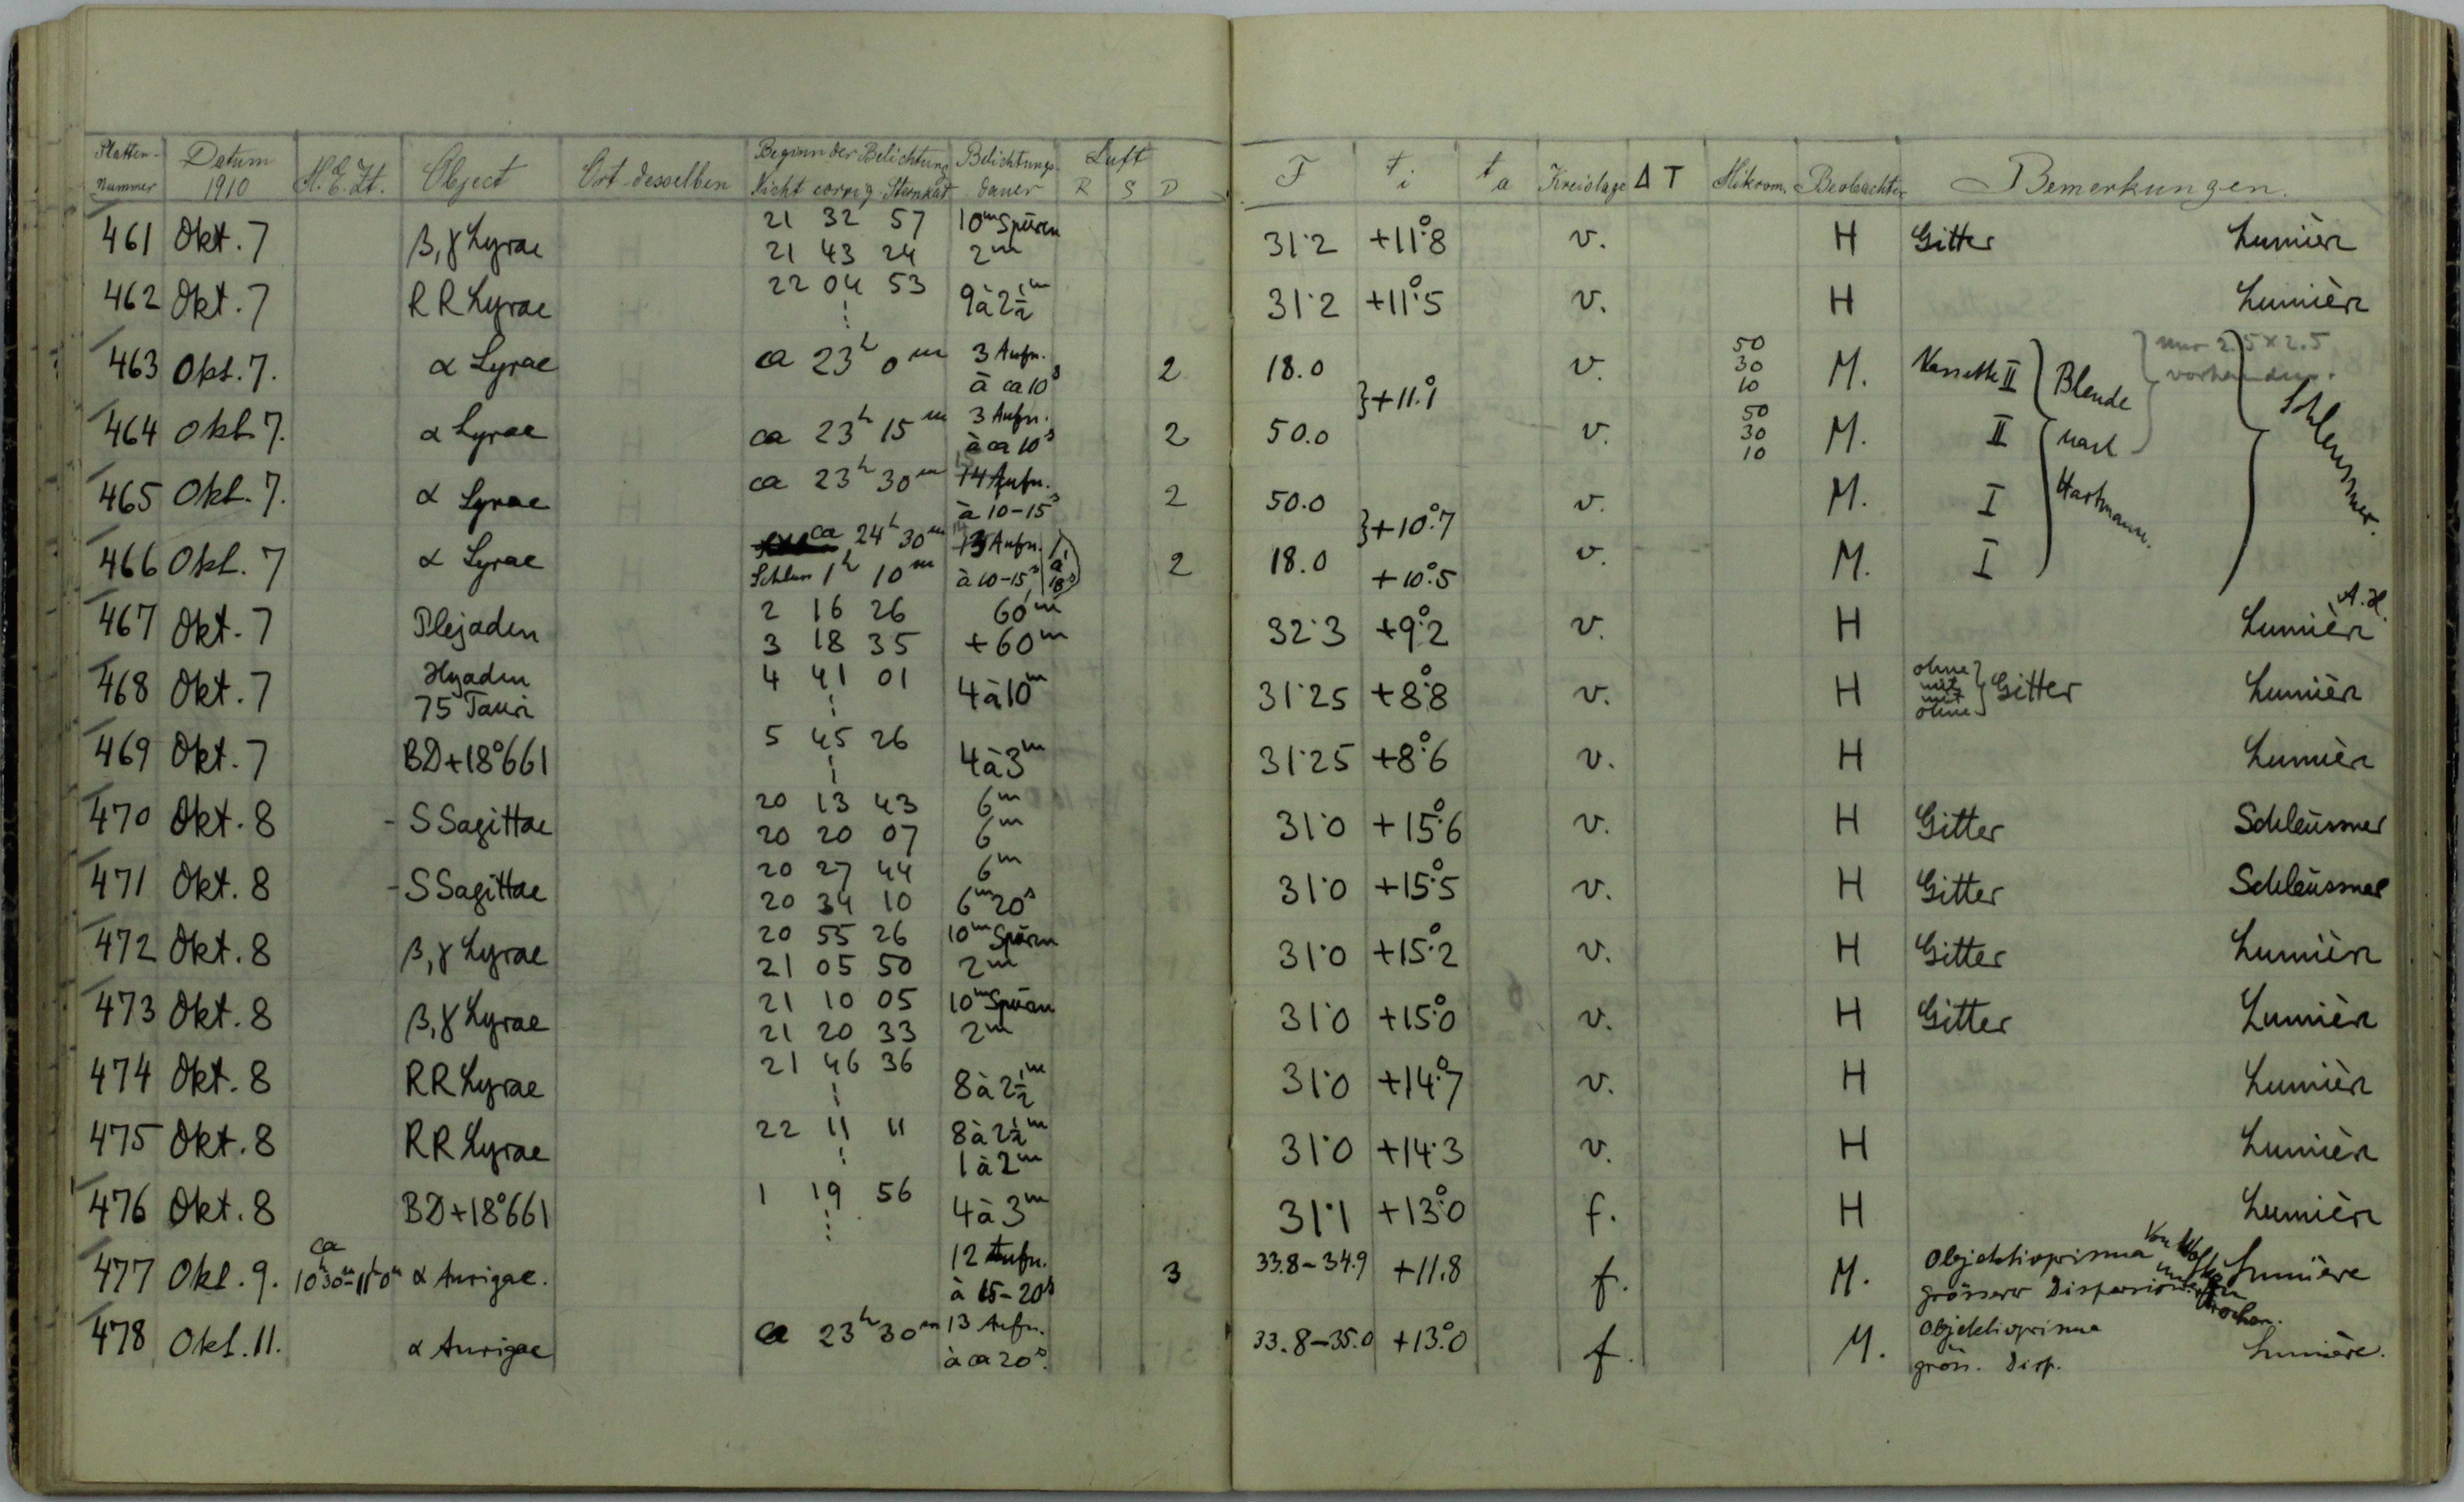 Platten-Nummer Datum 1910 M.E.Zt. Object Ort desselben Beginn der Belichtung Nicht corrig. Sternzeit Belichtungs-dauer Luft R S D F t i t a Kreislage Δ T Mikrom. Beobachter Bemerkungen.
461 Okt. 7 β, γ Lyrae 21 32 57 10m Spuren 31.2 +11°.8 v. H Gitter Lumière
21 43 24 2m
462 Okt. 7 RR Lyrae 22 04 53 9 à 2½m 31.2 +11°.5 v. H Lumière
463 Okt. 7. α Lyrae ca 23h 0m 3 Aufn. à ca 10s 2 18.0 } +11.°1 v. 50 30 10 M. Kassette II Blende nur 2.5 × 2.5 vorhanden.
464 Okt. 7. α Lyrae ca 23h 15m 3 Aufn. à ca 10s 2 50.0 v. 50 30 10 M. II nach Schleussner.
465 Okt. 7. α Lyrae ca 23h 30m 14 Aufn. à 10-15s 2 50.0 } +10°.7 v. M. I Hartmann.
466 Okt. 7 α Lyrae ca 24h 30m 13 Aufn. 2 18.0 v. M. I
Schluss 1h 10m à 10-15s +10°.5
467 Okt. 7 Plejaden 2 16 26 60m 32.3 +9°.2 v. H Lumière A.H.
3 18 35 +60m
468 Okt. 7 Hyaden 75 Tauri 4 41 01 4 à 10m 31.25 +8°.8 v. H ohne mit mit ohne } Gitter Lumière
469 Okt. 7 BD+18°661 5 45 26 4 à 3m 31.25 +8°.6 v. H Lumière
470 Okt. 8 - S Sagittae 20 13 43 6m 31.0 +15°.6 v. H Gitter Schleussner
20 20 07 6m
471 Okt. 8 - S Sagittae 20 27 44 6m 31.0 +15°.5 v. H Gitter Schleussner
20 34 10 6m 20s
472 Okt. 8 β, γ Lyrae 20 55 26 10m Spuren 31.0 +15°.2 v. H Gitter Lumière
21 05 50 2m
473 Okt. 8 β, γ Lyrae 21 10 05 10m Spuren 31.0 +15°.0 v. H Gitter Lumière
21 20 33 2m
474 Okt. 8 RR Lyrae 21 46 36 8 à 2½m 31.0 +14°.7 v. H Lumière
475 Okt. 8 RR Lyrae 22 11 11 8 à 2½m 31.0 +14.3 v. H Lumière
1 à 2m
476 Okt. 8 BD+18°661 1 19 56 4 à 3m 31.1 +13°.0 f. H Lumière
477 Okt. 9. ca 10h30m-11h0m α Aurigae. 12 Aufn. à 15-20s 3 33.8-34.9 +11.8 f. M. Objektivprisma grösserer Dispersion Von Wolken unterbrochen. Lumière
478 Okt. 11. α Aurigae ca 23h 30m 13 Aufn. à ca 20s. 33.8-35.0 +13°.0 f. M. Objektivprisma gröss. Disp. Lumière.